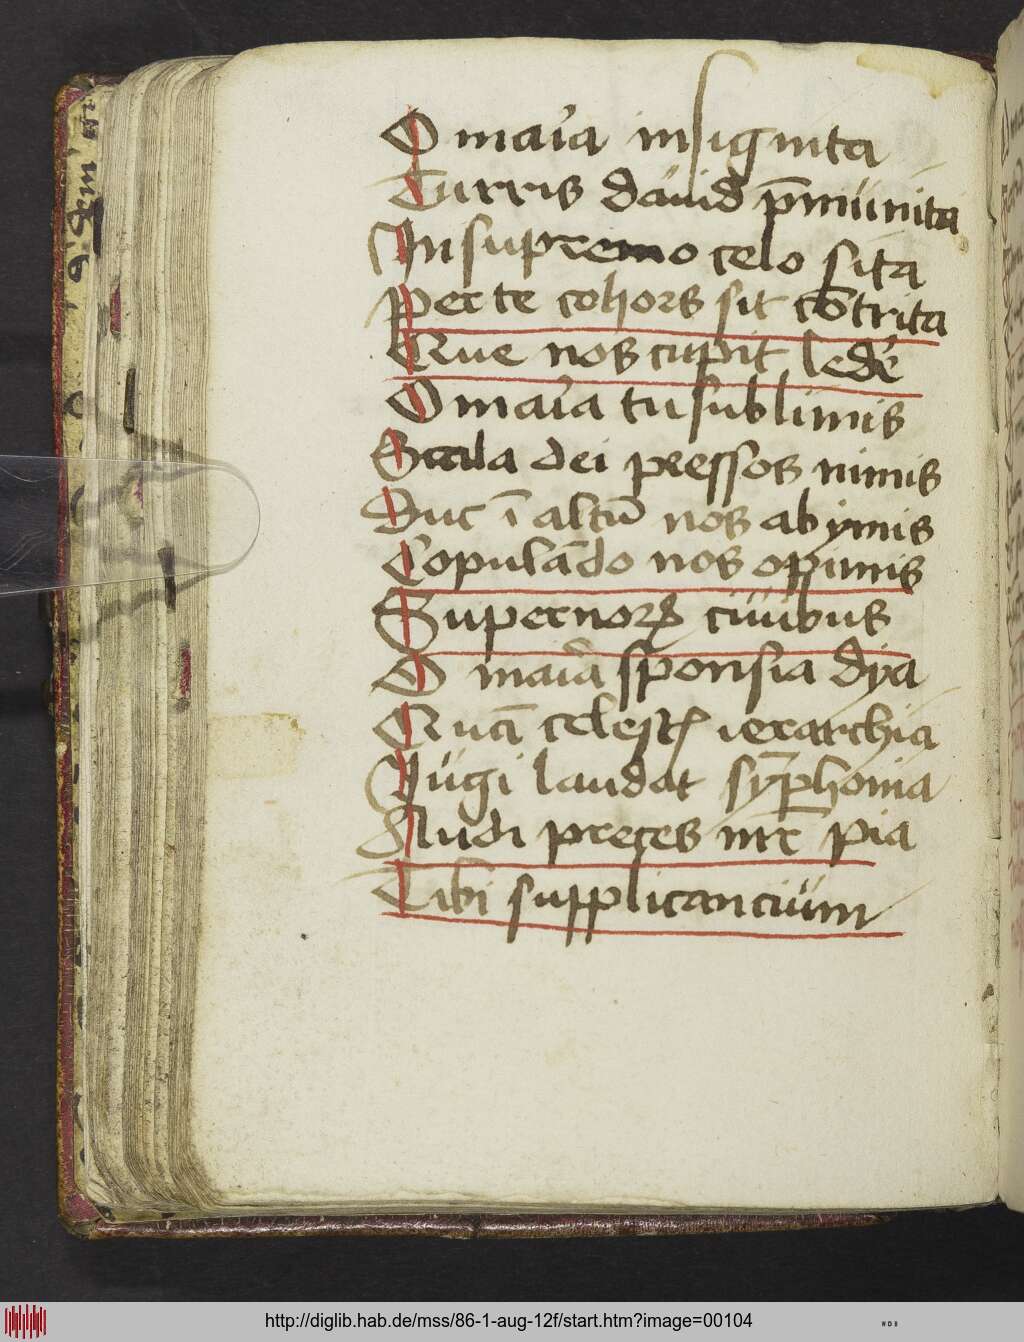 O maīa insignita
Turris dauid p̄munita
In supremo celo sita
Per te cohors sit cōtrita
Que nos cupit led̄e
O maīa tu sublimis
Scala dei pressos nimis
Duc ī altū nos ab ymis
Copulādo nos opimis
Supernorꝝ ciuibus
O maīa sponsa dya
Quā celestꝭ ierarchia
Iugi laudat symphonia
Audi preces int̄ pia
Tibi supplicancium
http://diglib.hab.de/mss/86-1-aug-12f/start.htm?image=00104